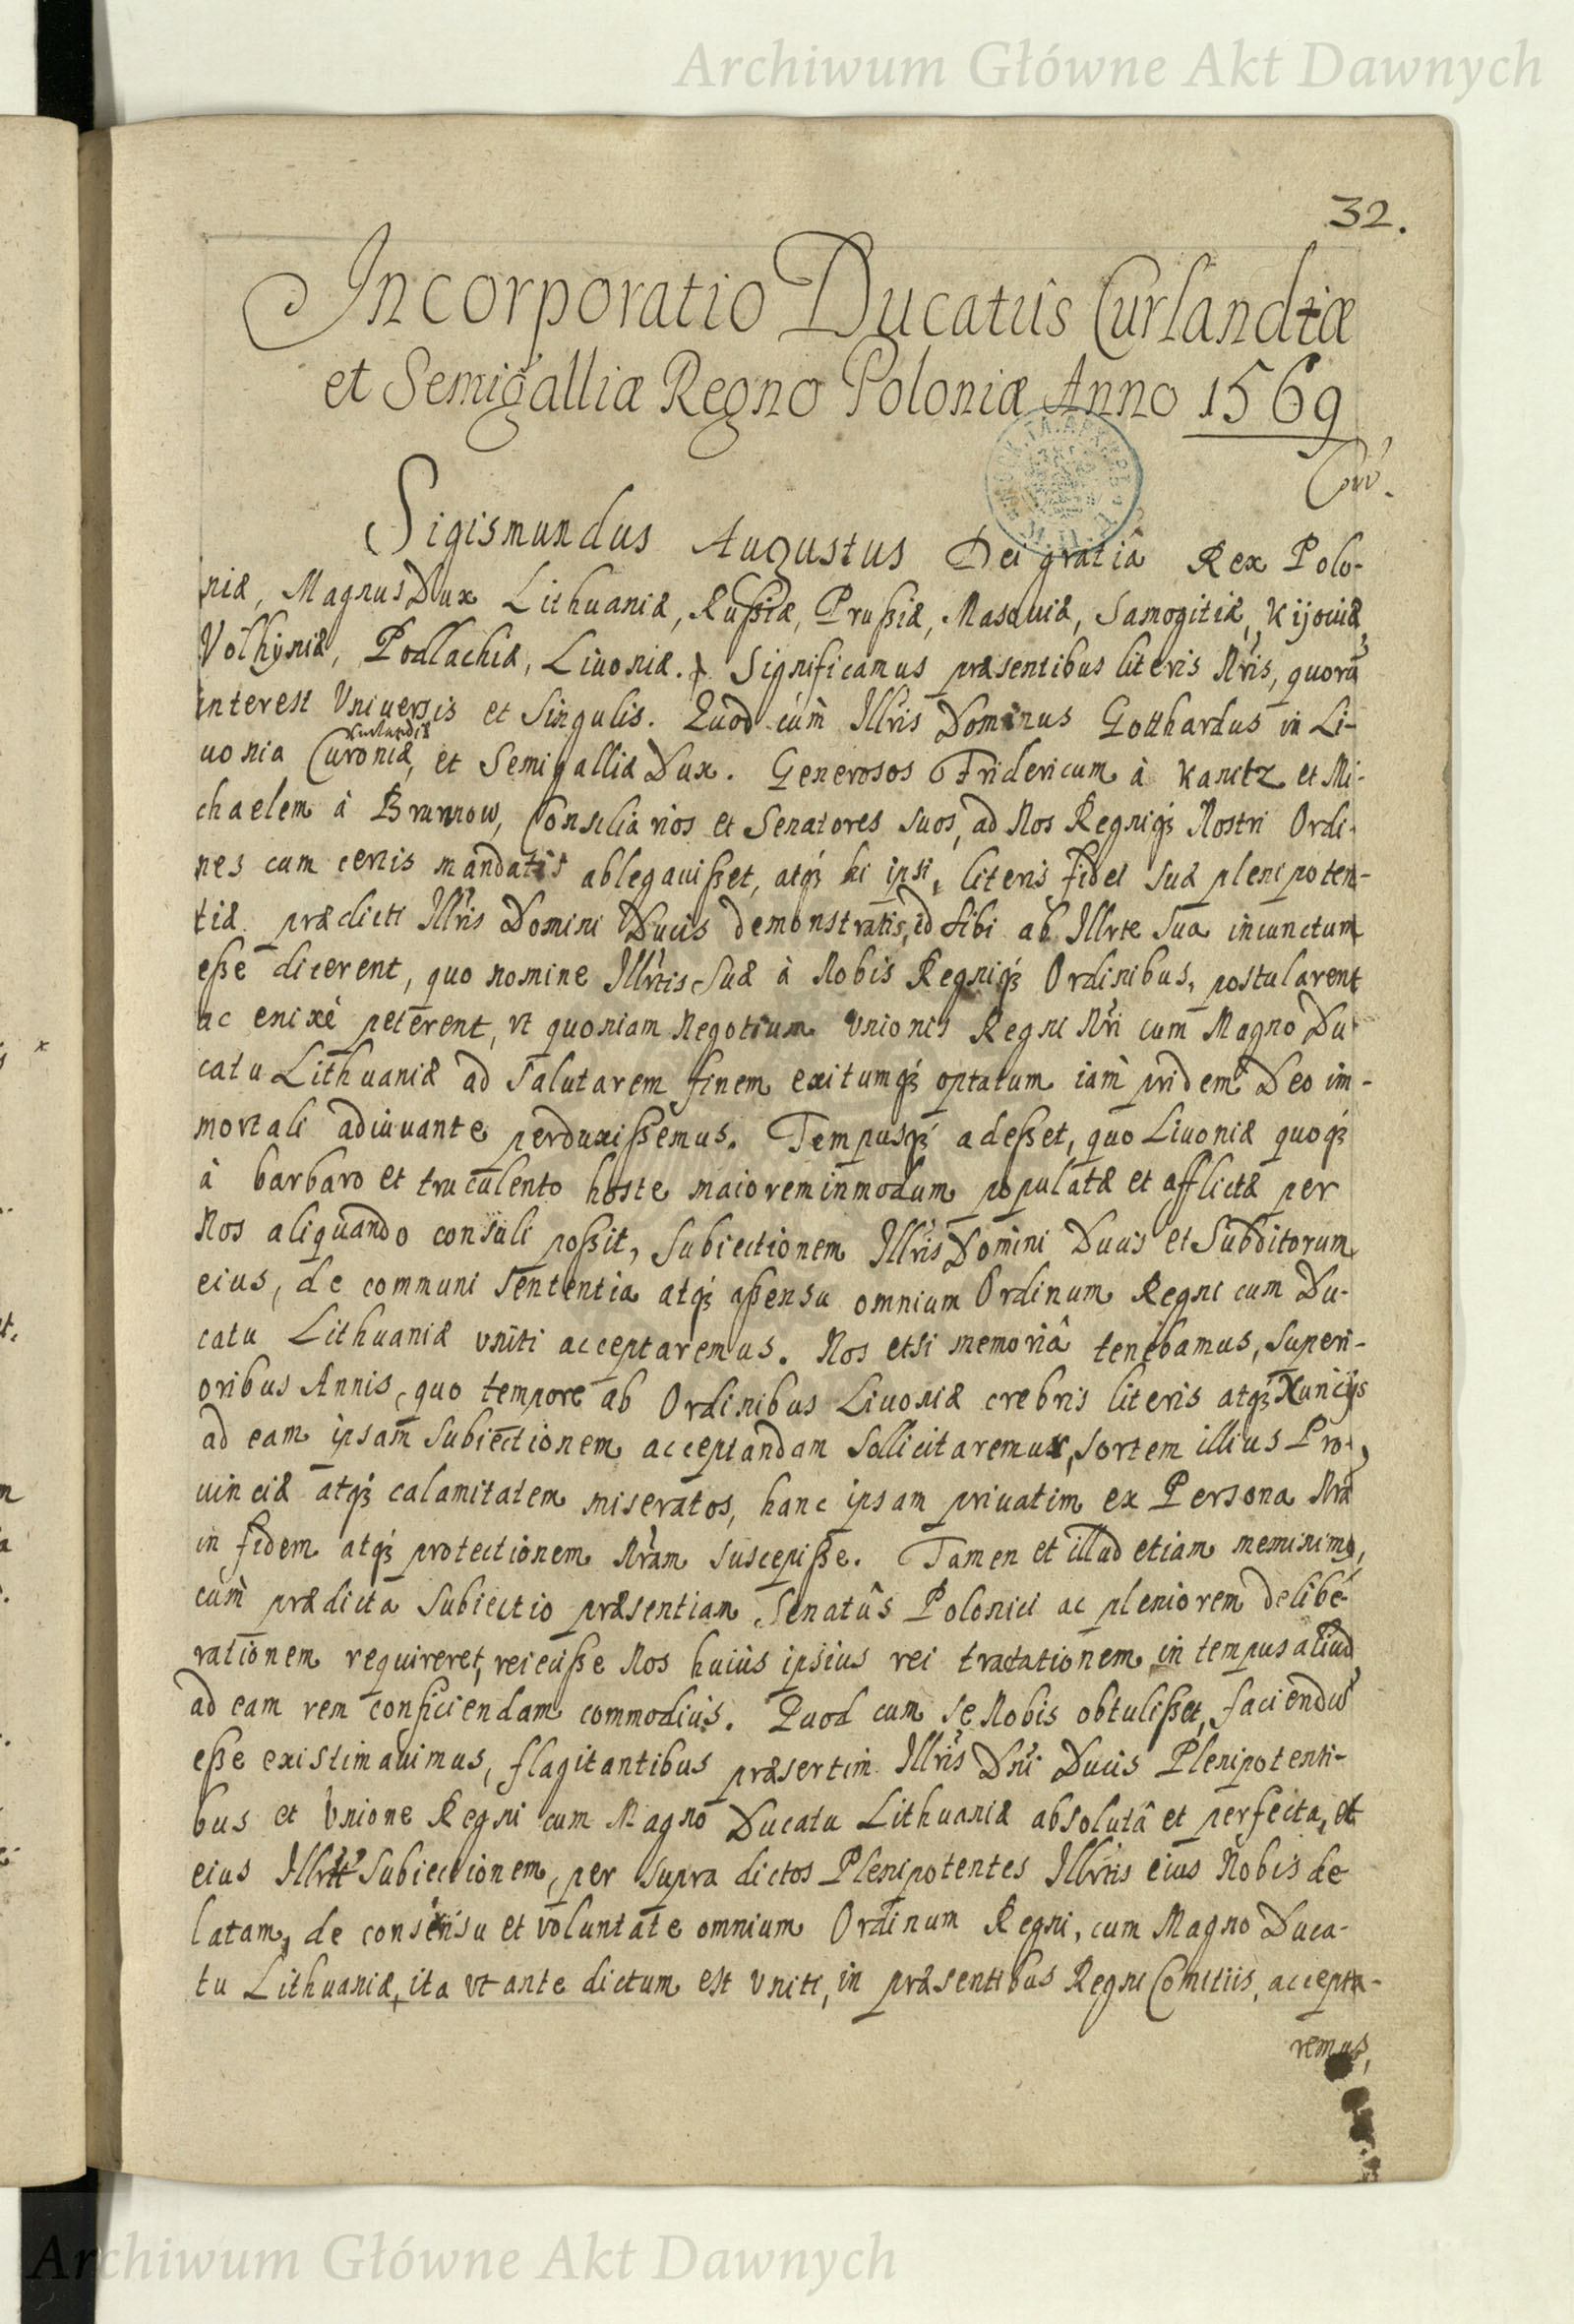 Archiwum Główne Akt Dawnych
32.
Incorporatio Ducatûs Curlandiæ
et Semigalliæ Regno Poloniæ Anno 1569
Sigismundus Augustus Dei gratiâ Rex Polo-
niæ, Magnus Dux Lithuaniæ, Rußiæ, Prußiæ, Masouiæ, Samogitiæ, Kijouiæ,
Volhyniæ, Podlachiæ, Liuoniæ. Significamus præsentibus literis Nr̃is, quorũ
interest Vniuersis et singulis. Quod cùm Illr̃is Dominus Gotthardus in Li-
Curlandiæ
uonia Curoniæ, et Semigalliæ Dux. Generosos Fridericum à Kanitz et Mi-
chaelem à Brunnow, Consiliarios et Senatores suos, ad Nos Regniq́ꝫ Nostri Ordi-
nes cum certis mandatis ablegauißet, atq́ꝫ hi ipsi, literis fidei suæ plenipoten-
tiæ prædicti Illr̃is Domini Ducis demonstratis, id sibi ab Illrte sua iniunctum
eße dicerent, quo nomine Illr̃tis Suæ à Nobis Regniq́ꝫ Ordinibus, postularent
ac enixè peterent, vt quoniam Negotium Vnionis Regni Nr̃i cum Magno Du-
catu Lithuaniæ ad salutarem finem exitumq́ꝫ optatum iam pridem Deo im-
mortali adiuuante perduxißemus. Tempusq́ꝫ adeßet, quo Liuoniæ quoq́ꝫ
à barbaro et truculento hoste maiorem inmodum populatæ et afflictæ per
Nos aliquando consuli poßit, subiectionem Illr̃is Domini Ducis et Subditorum
eius, de communi sententia atq́ꝫ aßensu omnium Ordinum Regni cum Du-
catu Lithuaniæ vniti acceptaremus. Nos etsi memoriâ tenebamus, superi-
oribus Annis, quo tempore ab Ordinibus Liuoniæ crebris literis atq́ꝫ Nuncijs
ad eam ipsam subiectionem acceptandam sollicitaremur, sortem illius Pro-
uinciæ atq́ꝫ calamitatem miseratos, hanc ipsam priuatim ex Persona Nr̃a
in fidem atq́ꝫ protectionem Nr̃am suscepiße. Tamen et illud etiam meminimꝰ,
cùm prædicta subiectio præsentiam Senatûs Polonici ac pleniorem delibe-
rationem requireret, reieciße Nos huiûs ipsius rei tractationem in tempus aliud
ad eam rem conficiendam commodius. Quod cum se Nobis obtulißet, faciendũ
eße existimauimus, flagitantibus præsertim Illr̃is Dñi Ducis Plenipotenti-
bus et Vnione Regni cum Magno Ducatu Lithuaniæ absolutâ et perfecta, et
eius subiectionem, per supra dictos Plenipotentes Illr̃tis eius Nobis de
latam, de consensu et voluntate omnium Ordinum Regni, cum Magno Duca-
tu Lithuaniæ, ita vt ante dictum est vniti, in præsentibus Regni Comitiis, accepta-
remus,
Archiwum Główne Akt Dawnych